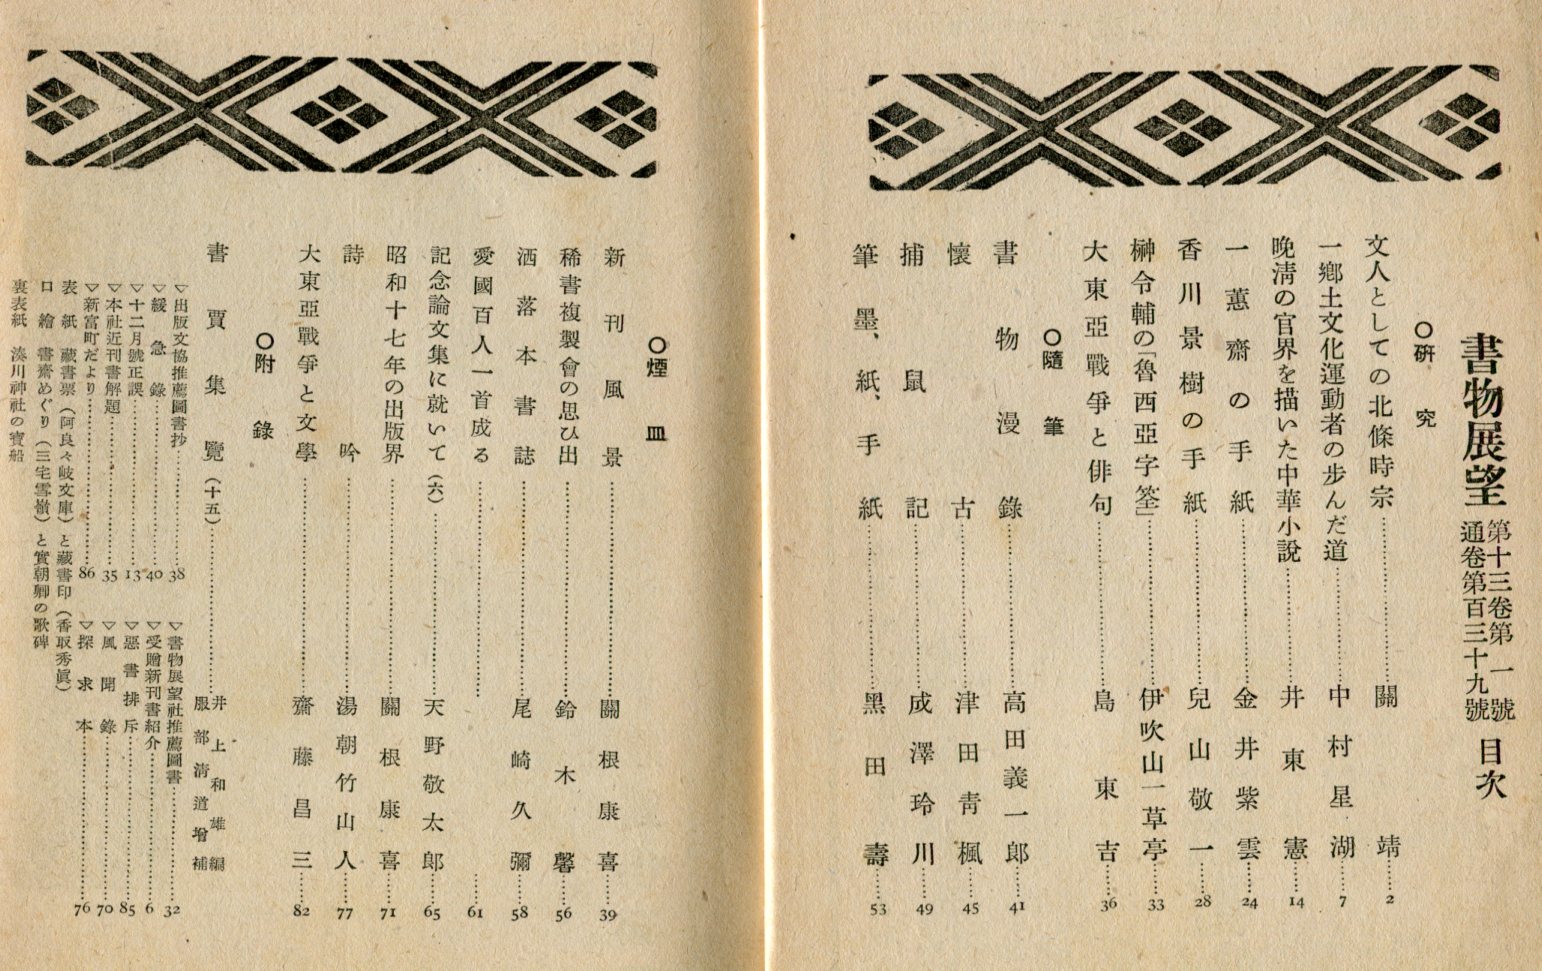 書物展望 第十三卷第一號 通卷第百三十九號 目次
〇硏究
文人としての北條時宗……關靖……2
一鄕土文化運動者の步んだ道……中村星湖……7
晩淸の官界を描いた中華小說……井東憲……14
一蕙齋の手紙……金井紫雲……24
香川景樹の手紙……兒山敬一……28
榊令輔の「魯西亞字筌」……伊吹山一草亭……33
大東亞戰爭と俳句……島東吉……36
〇隨筆
書物漫錄……高田義一郎……41
懷古……津田靑楓……45
捕鼠記……成澤玲川……49
筆、墨、紙、手紙……黑田壽……53
〇煙皿
新刊風景……關根康喜……39
稀書複製會の思ひ出……鈴木馨……56
洒落本書誌……尾崎久彌……58
愛國百人一首成る……61
記念論文集に就いて(六)……天野敬太郎……65
昭和十七年の出版界……關根康喜……71
詩吟……湯朝竹山人……77
大東亞戰爭と文學……齋藤昌三……82
〇附錄
書賈集覽(十五)……井上和雄編 服部淸道增補
▽出版文協推薦圖書抄……38
▽緩急錄……40
▽十二月號正誤……13
▽本社近刊書解題……35
▽新富町だより……86
▽書物展望社推薦圖書……32
▽受贈新刊書紹介……6
▽惡書排斥……85
▽風聞錄……70
▽探求本……76
表紙 藏書票(阿良々岐文庫)と藏書印(香取秀眞)
口繪 書齋めぐり(三宅雪嶺)と實朝卿の歌碑
裏表紙 湊川神社の寶船